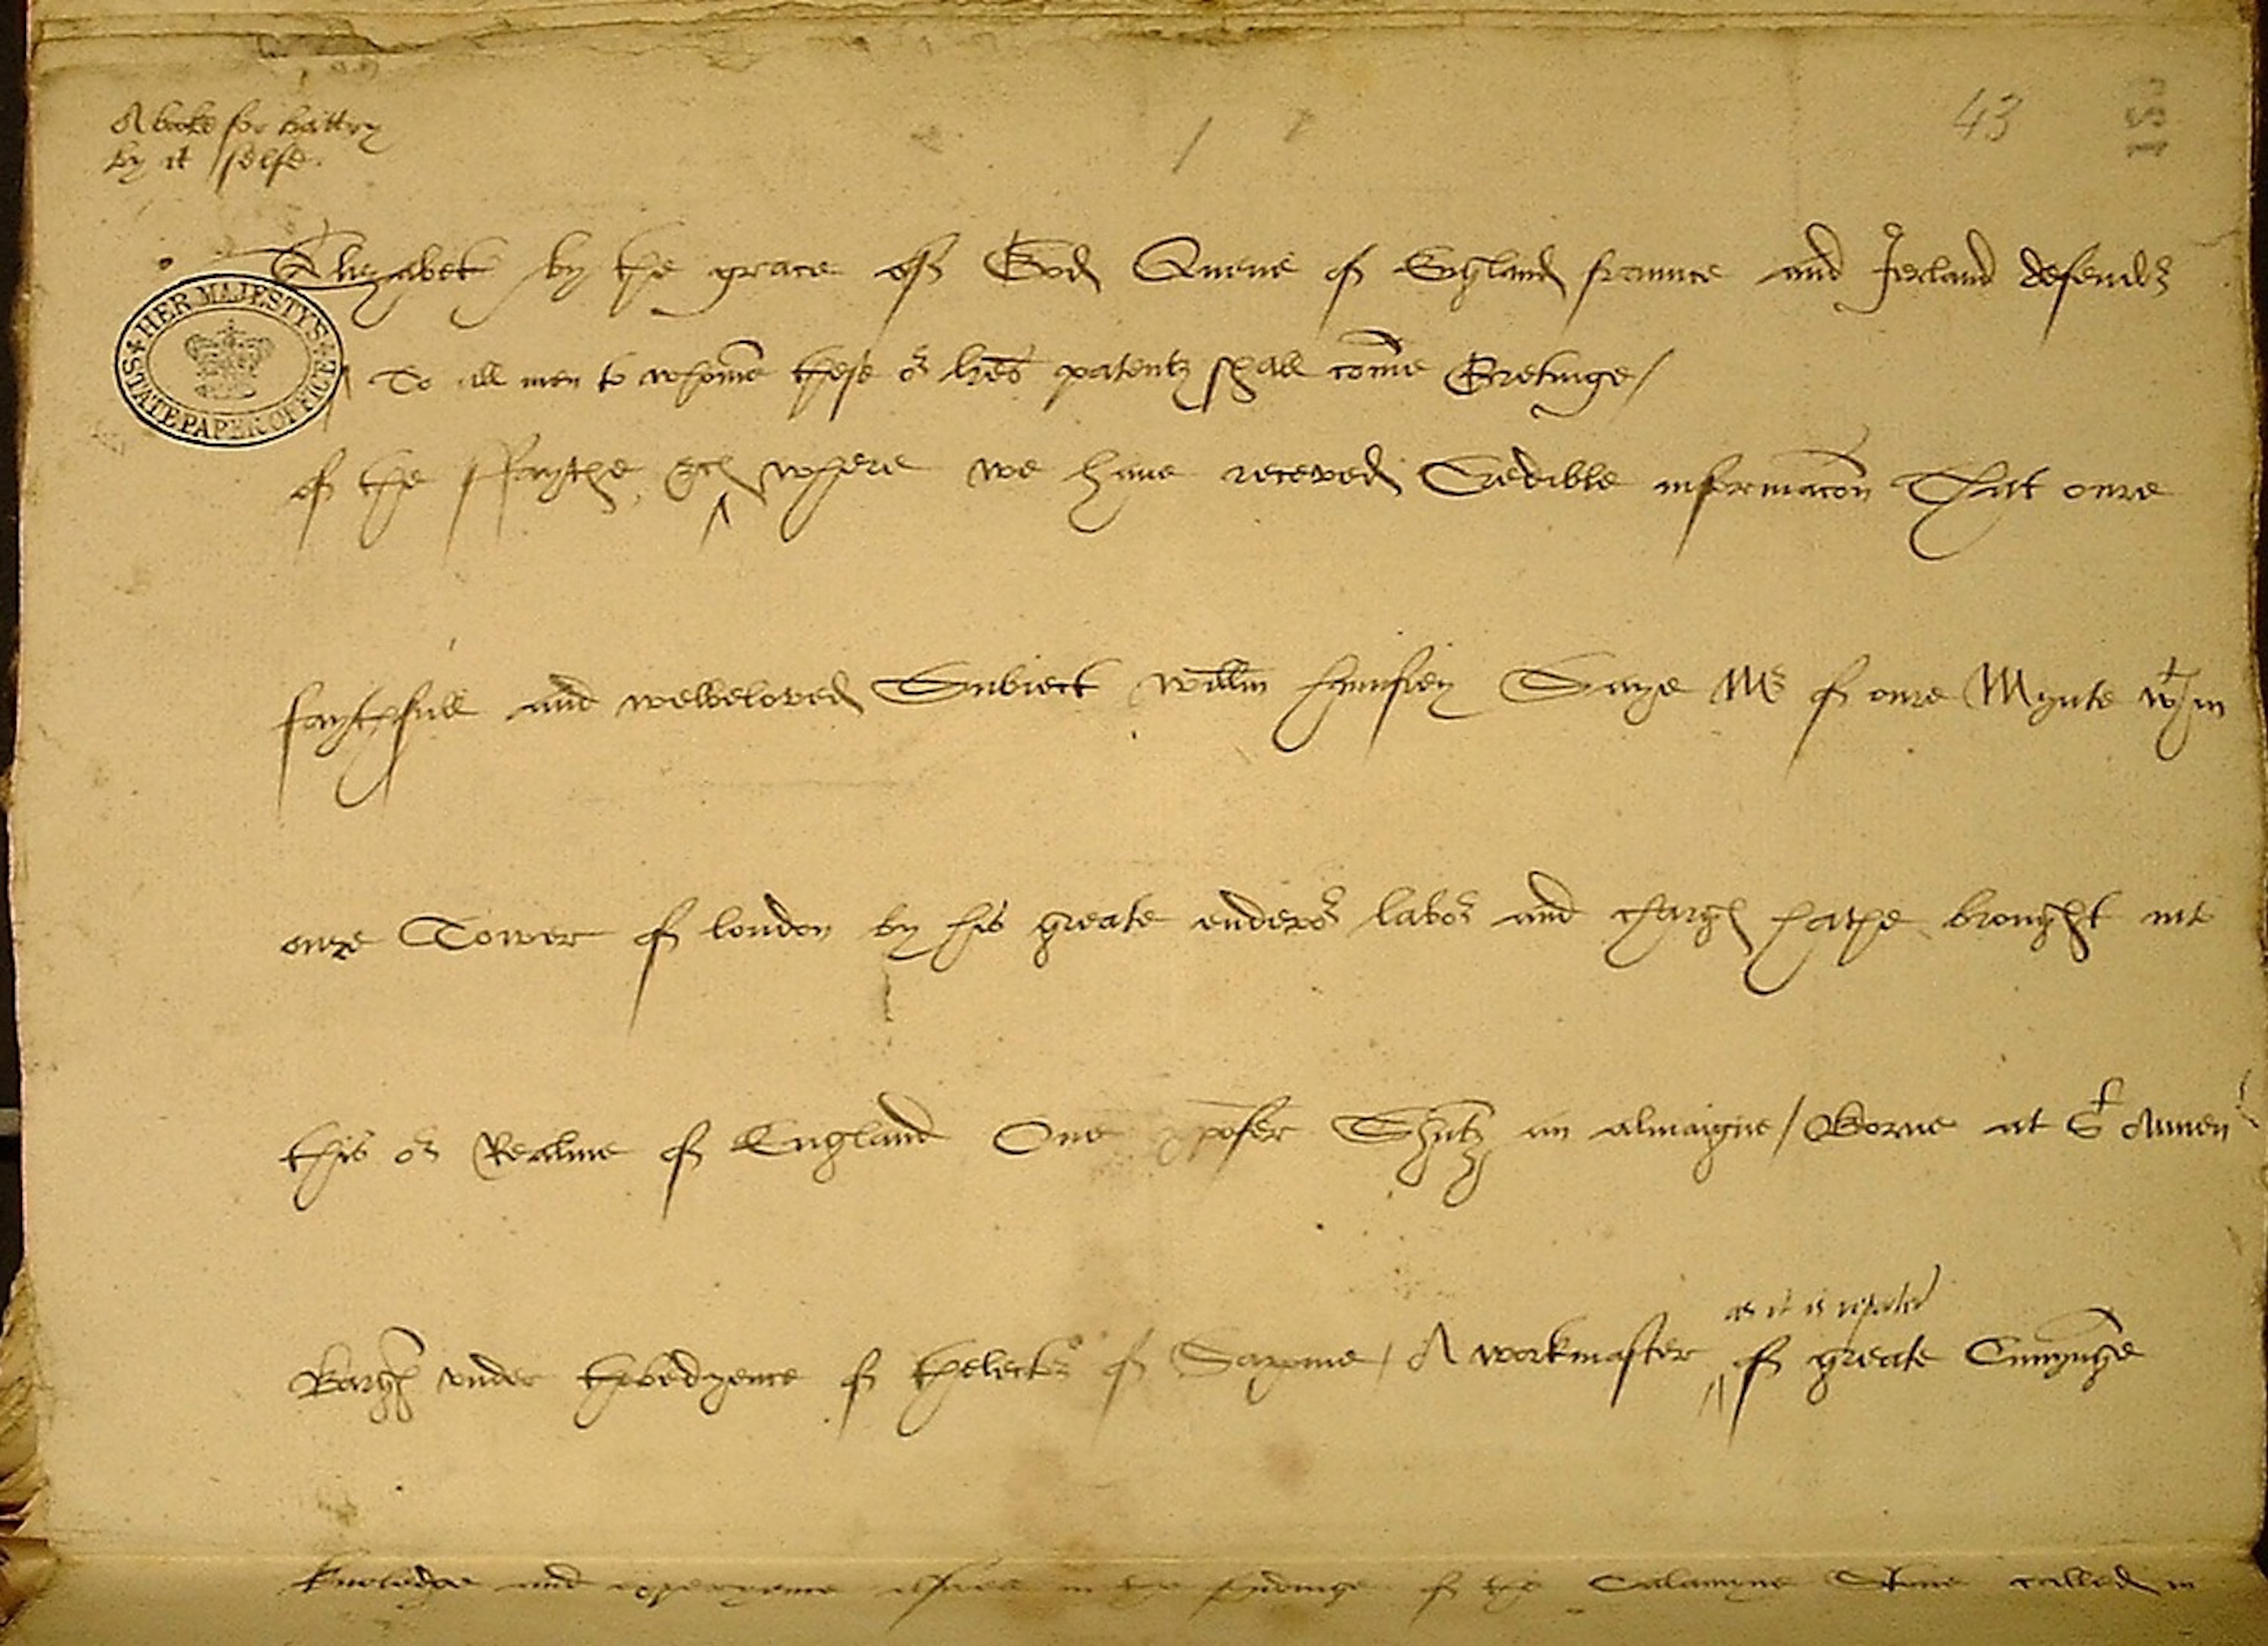 A booke for battry
by it selfe.
43
HER MAJESTY'S STATE PAPER OFFICE
Elizabeth by the grace off God Quene of England fraunce and Ireland defendor
To all men to whome these or lres patents shall come Gretinge /
of the ffaythe, &c where we have receved Credible informacon That oure
faythfull and welbeloved Subiect Willm Humfrey Saye Mr of oure Mynte wt in
oure Tower of london by his greate endevor labor and charges hathe brought int
this or Realme of England One Shutz an almaigne / Borne at St Annen
Bargh under thobedyence of thelector of Saxonie / A workmaster of greate Cunnynge
as it is reported
knowledge and experyence in the fyndinge of the Calamyne Stone called in